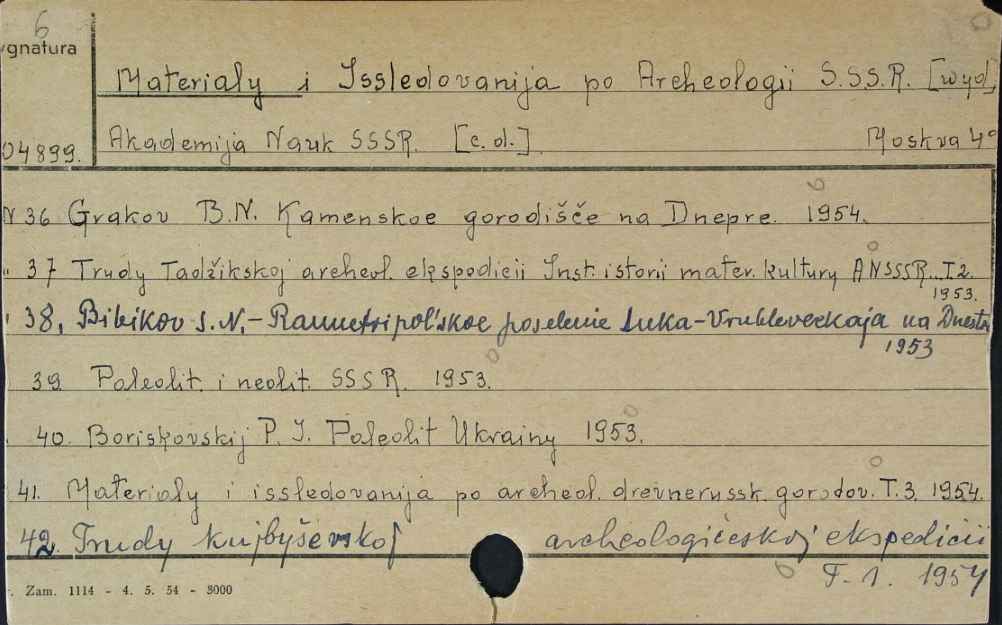 6
ygnatura
Materiały i Issledovanija po Archeologii S.S.S.R. [wyd.
04899. Akademija Nauk SSSR. [c.d.]. Moskva 4°
N 36 Grakov B.N. Kamenskoe gorodišče na Dnepre. 1954.
" 37 Trudy Tadžikskoj archeol. ekspedicii Inst. istorii mater. kultury ANSSSR. T. 2.
1953.
38. Bibikov S.N. - Rannetripol'skoe poselenie Luka-Vrubleveckaja na Dnestr
1953
39. Paleolit. i neolit. SSSR. 1953.
40. Boriskovskij P. I. Paleolit Ukrainy 1953.
41. Materiały i issledovanija po archeol. drevnerussk. gorodov. T. 3. 1954.
42. Trudy kujbyševskoj archeologičeskoj ekspedicii
T. 1. 1954
Zam. 1114 - 4. 5. 54 - 3000